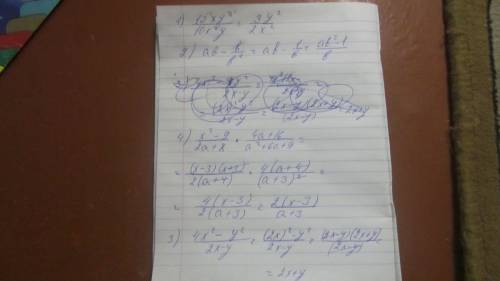 1) 15xy³/10x³y = 3y²/2x²
2) ab - b/b² = ab - 1/b = ab²-1/b
4) x²-9/2a+8 · 4a+16/a²+6a+9 =
= (x-3)(x+3)/2(a+4) · 4(a+4)/(a+3)² =
= 4(x-3)/2(a+3) = 2(x-3)/a+3
3) 4x²-y²/2x-y = (2x)²-y²/2x-y = (2x-y)(2x+y)/(2x-y)
= 2x+y